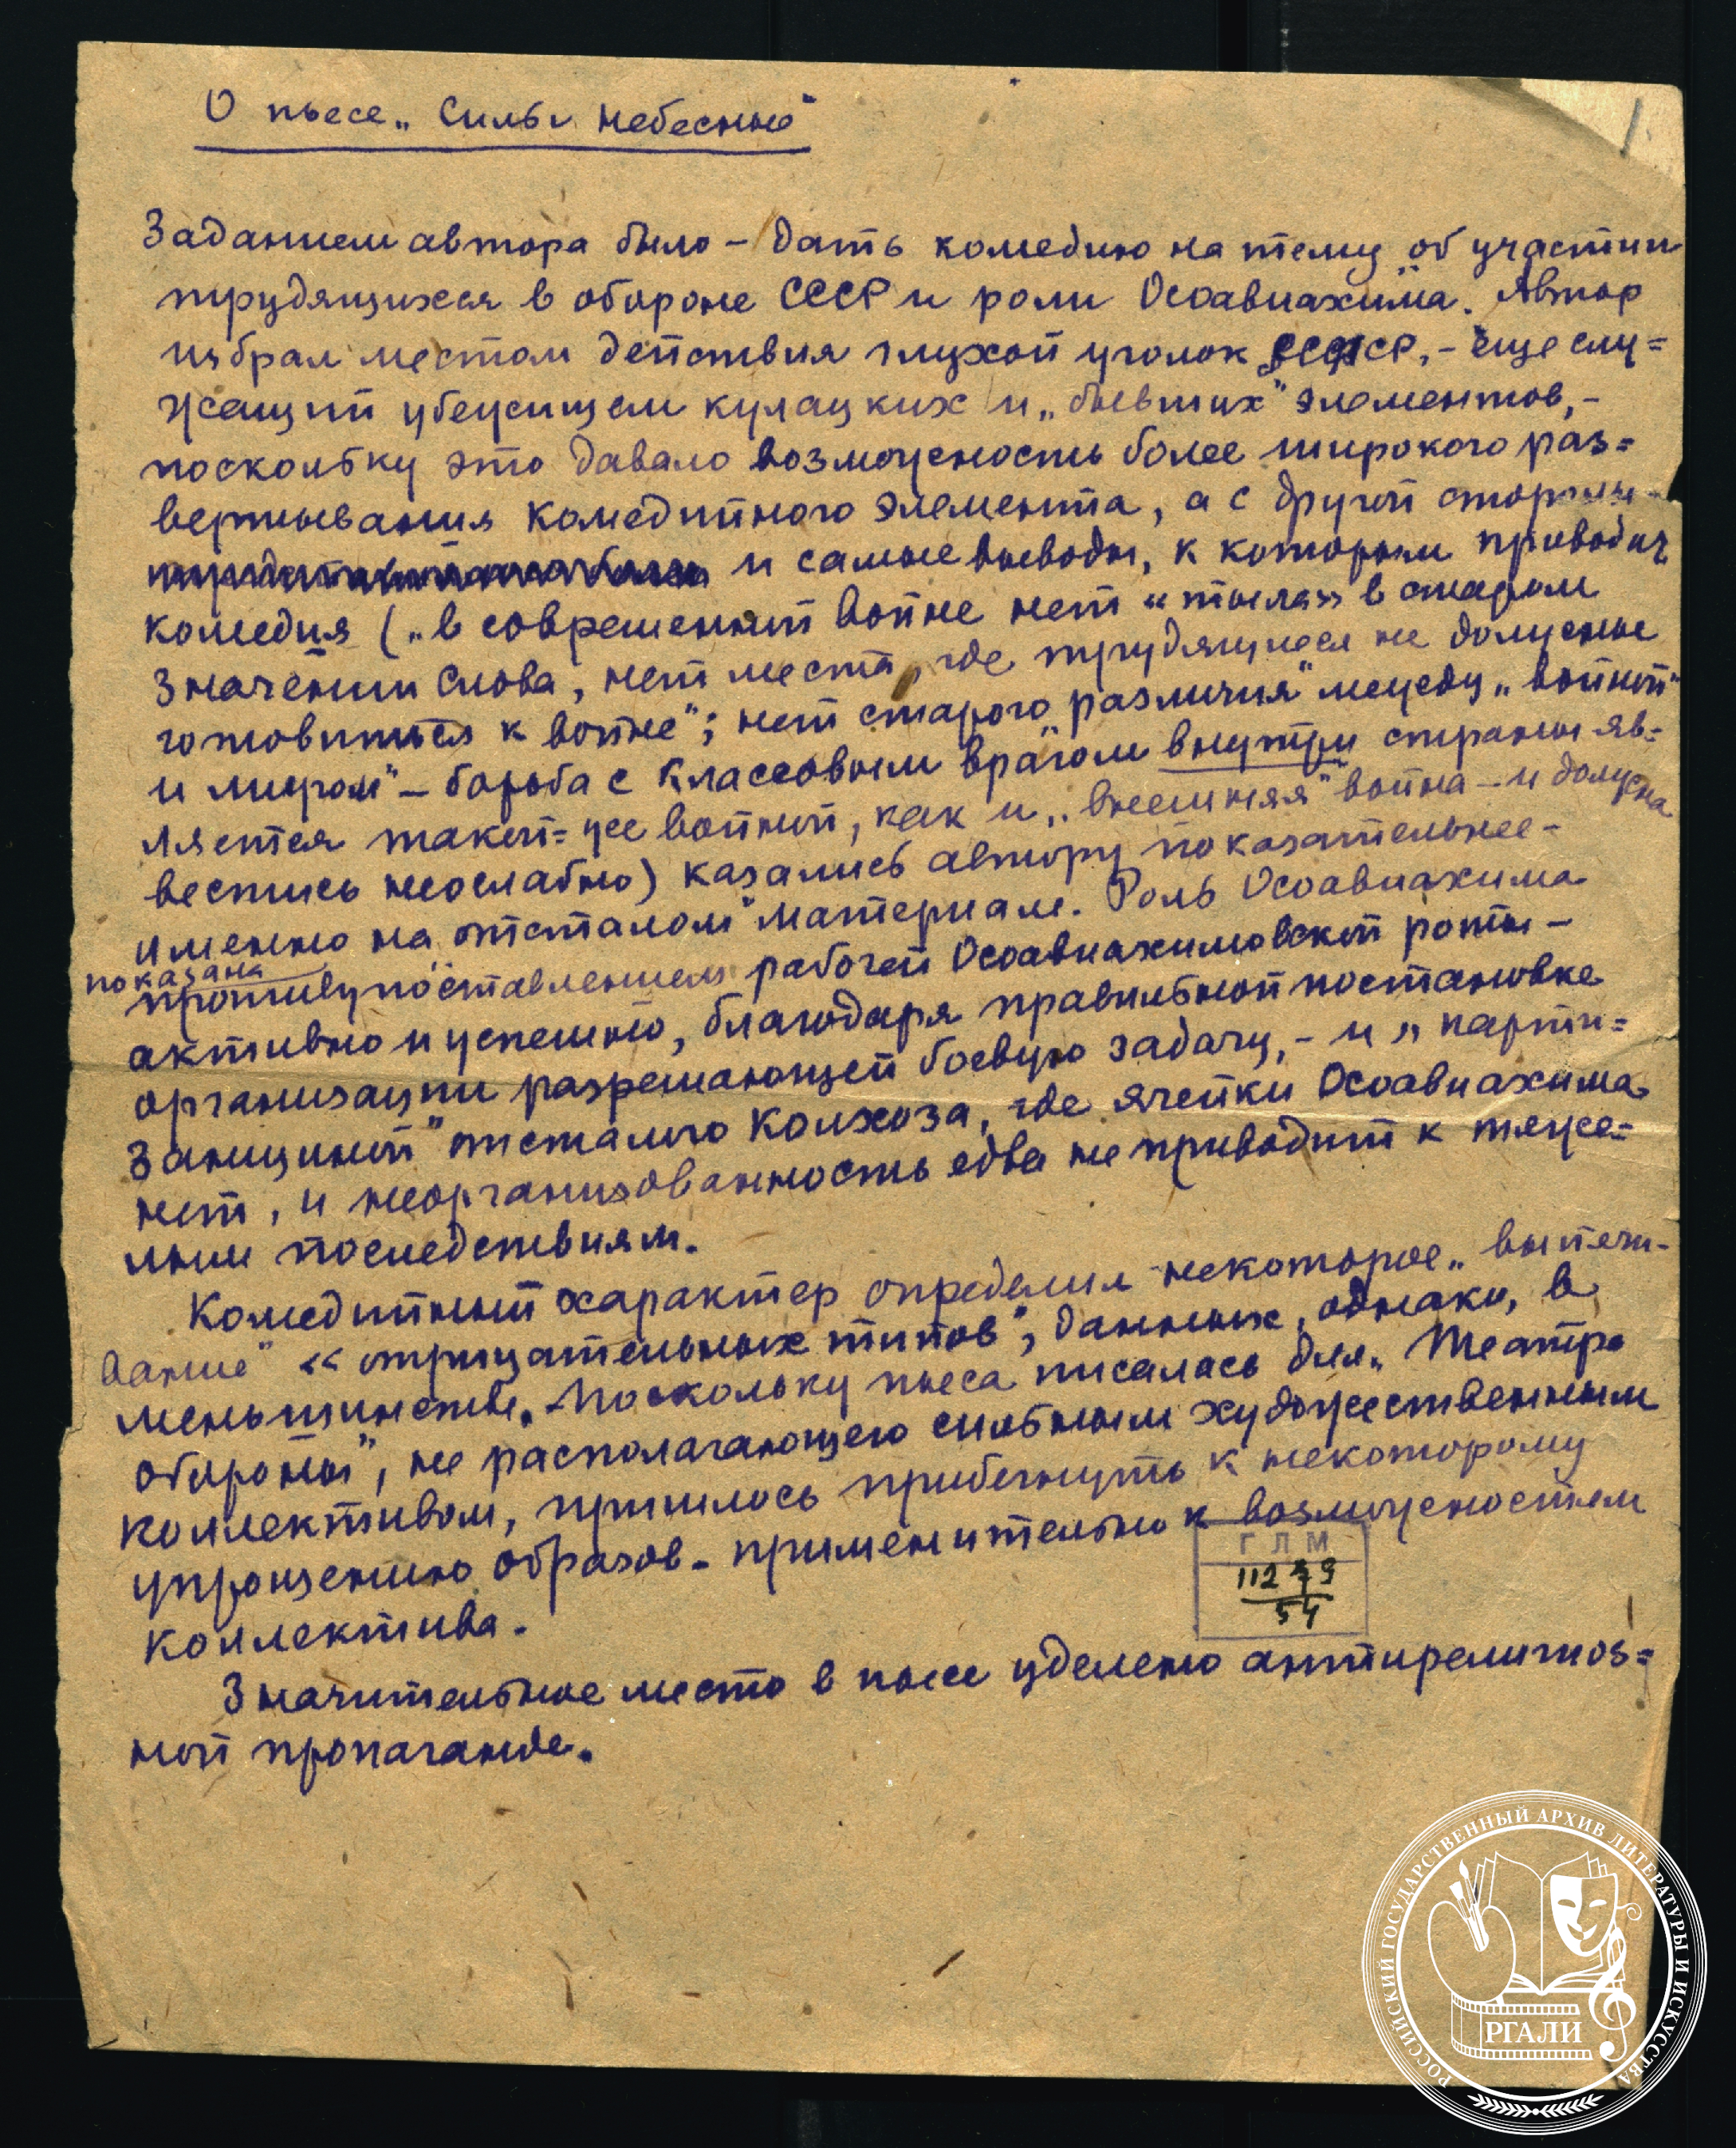 О пьесе „Силы небесные“
1
Заданием автора было – дать комедию на тему об участии
трудящихся в обороне СССР и роли Осоавиахима. Автор
избрал местом действия глухой уголок СССР, – еще слу=
жащий убежищем кулацких и „бывших“ элементов, –
поскольку это давало возможность более широкого раз=
вертывания комедийного элемента, а с другой стороны –
и самые выводы, к которым приводит
комедия („в современной войне нет «тыла» в старом
значении слова, нет места, где трудящиеся не должны
готовиться к войне“; нет старого „различия“ между „войной“
и миром“ – борьба с классовым врагом внутри страны яв=
ляется такой=же войной, как и „внешняя“ война – и должна
вестись неослабно) казались автору показательнее –
именно на „отсталом“ материале. Роль Осоавиахима
показана
противупоставлением рабочей Осоавиахимовской роты –
активно и успешно, благодаря правильной постановке
организации разрешающей боевую задачу, – и „парти=
занщиной“ отсталого колхоза, где ячейки Осоавиахима
нет, и неорганизованность едва не приводит к тяже=
лым последствиям.
Комедийный характер определил некоторое „выпячи-
вание“ «отрицательных типов“, данных, однако, в
меньшинстве. Поскольку пьеса писалась для „Театра
обороны“, не располагающего сильным художественным
коллективом, пришлось прибегнуть к некоторому
упрощению образов – применительно к возможностям
коллектива.
ГЛМ
11279
54
Значительное место в пьесе уделено антирелигиоз=
ной пропаганде.
РОССИЙСКИЙ ГОСУДАРСТВЕННЫЙ АРХИВ ЛИТЕРАТУРЫ И ИСКУССТВА
РГАЛИ